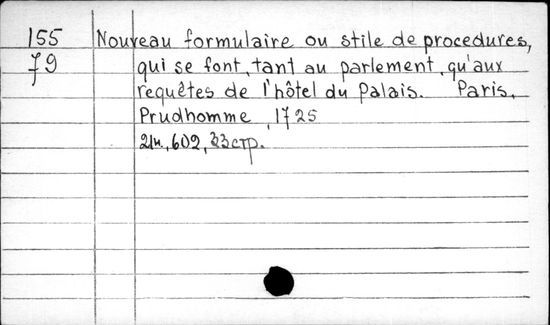 155 Nouveau formulaire ou stile de procedures,
79 qui se font, tant au parlement, qu'aux
requêtes de l'hôtel du Palais. Paris,
Prudhomme, 1725
602, 33 стр.